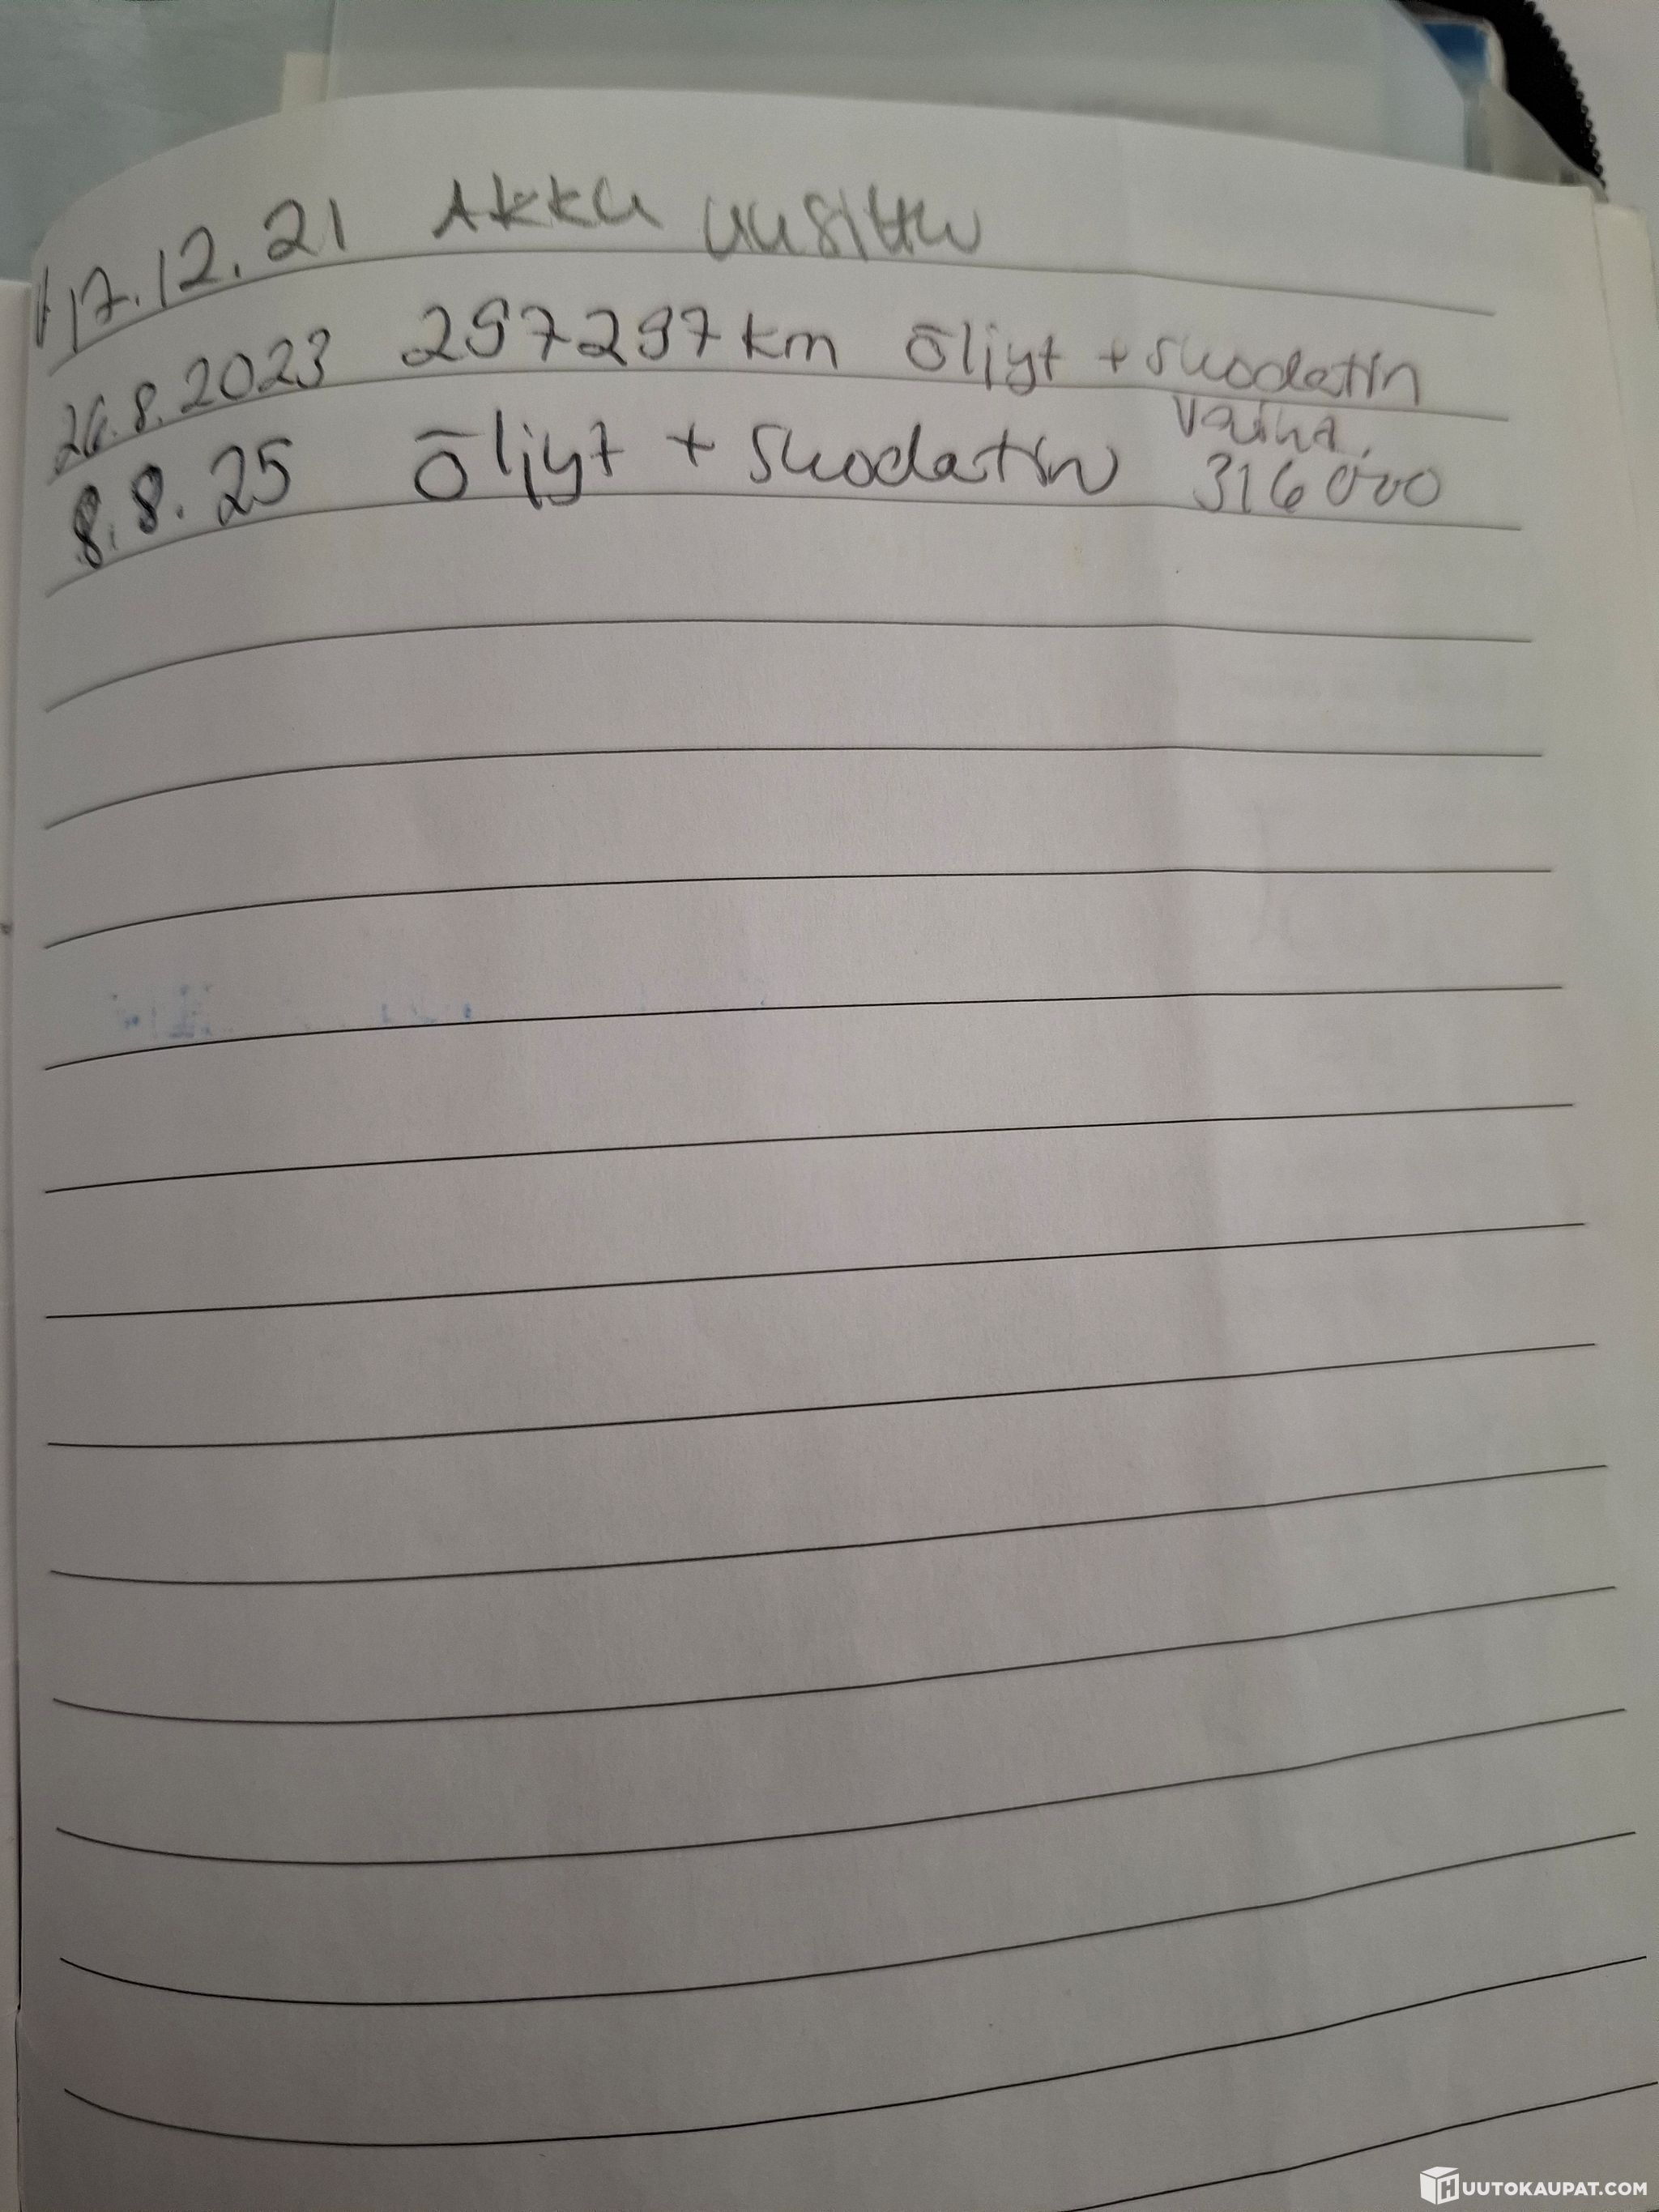 17.12.21 Akku uusittu
26.8.2023 297297 km öljyt + suodatin
vaihd.
8.8.25 öljyt + suodatin 316000
HUUTOKAUPAT.COM